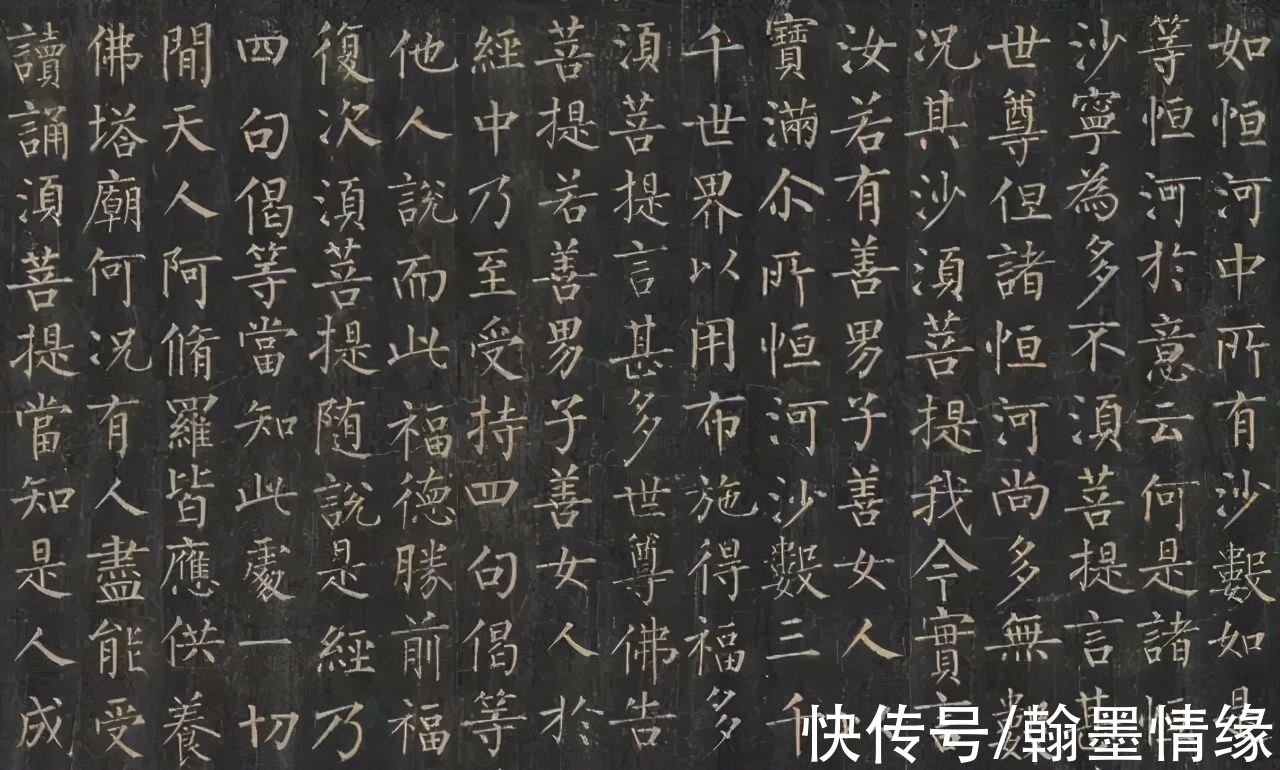 如恒河中所有沙數如是
等恒河於意云何是諸恒
沙寧為多不須菩提言甚
世尊但諸恒河尚多無數
況其沙須菩提我今實言
汝若有善男子善女人
寶滿尒所恒河沙數三千
千世界以用布施得福多
須菩提言甚多世尊佛告
菩提若善男子善女人於
經中乃至受持四句偈等
他人說而此福德勝前福
復次須菩提随說是經乃
四句偈等當知此處一切
間天人阿脩羅皆應供養
佛塔廟何況有人盡能受
讀誦須菩提當知是人成
快传号/翰墨情缘